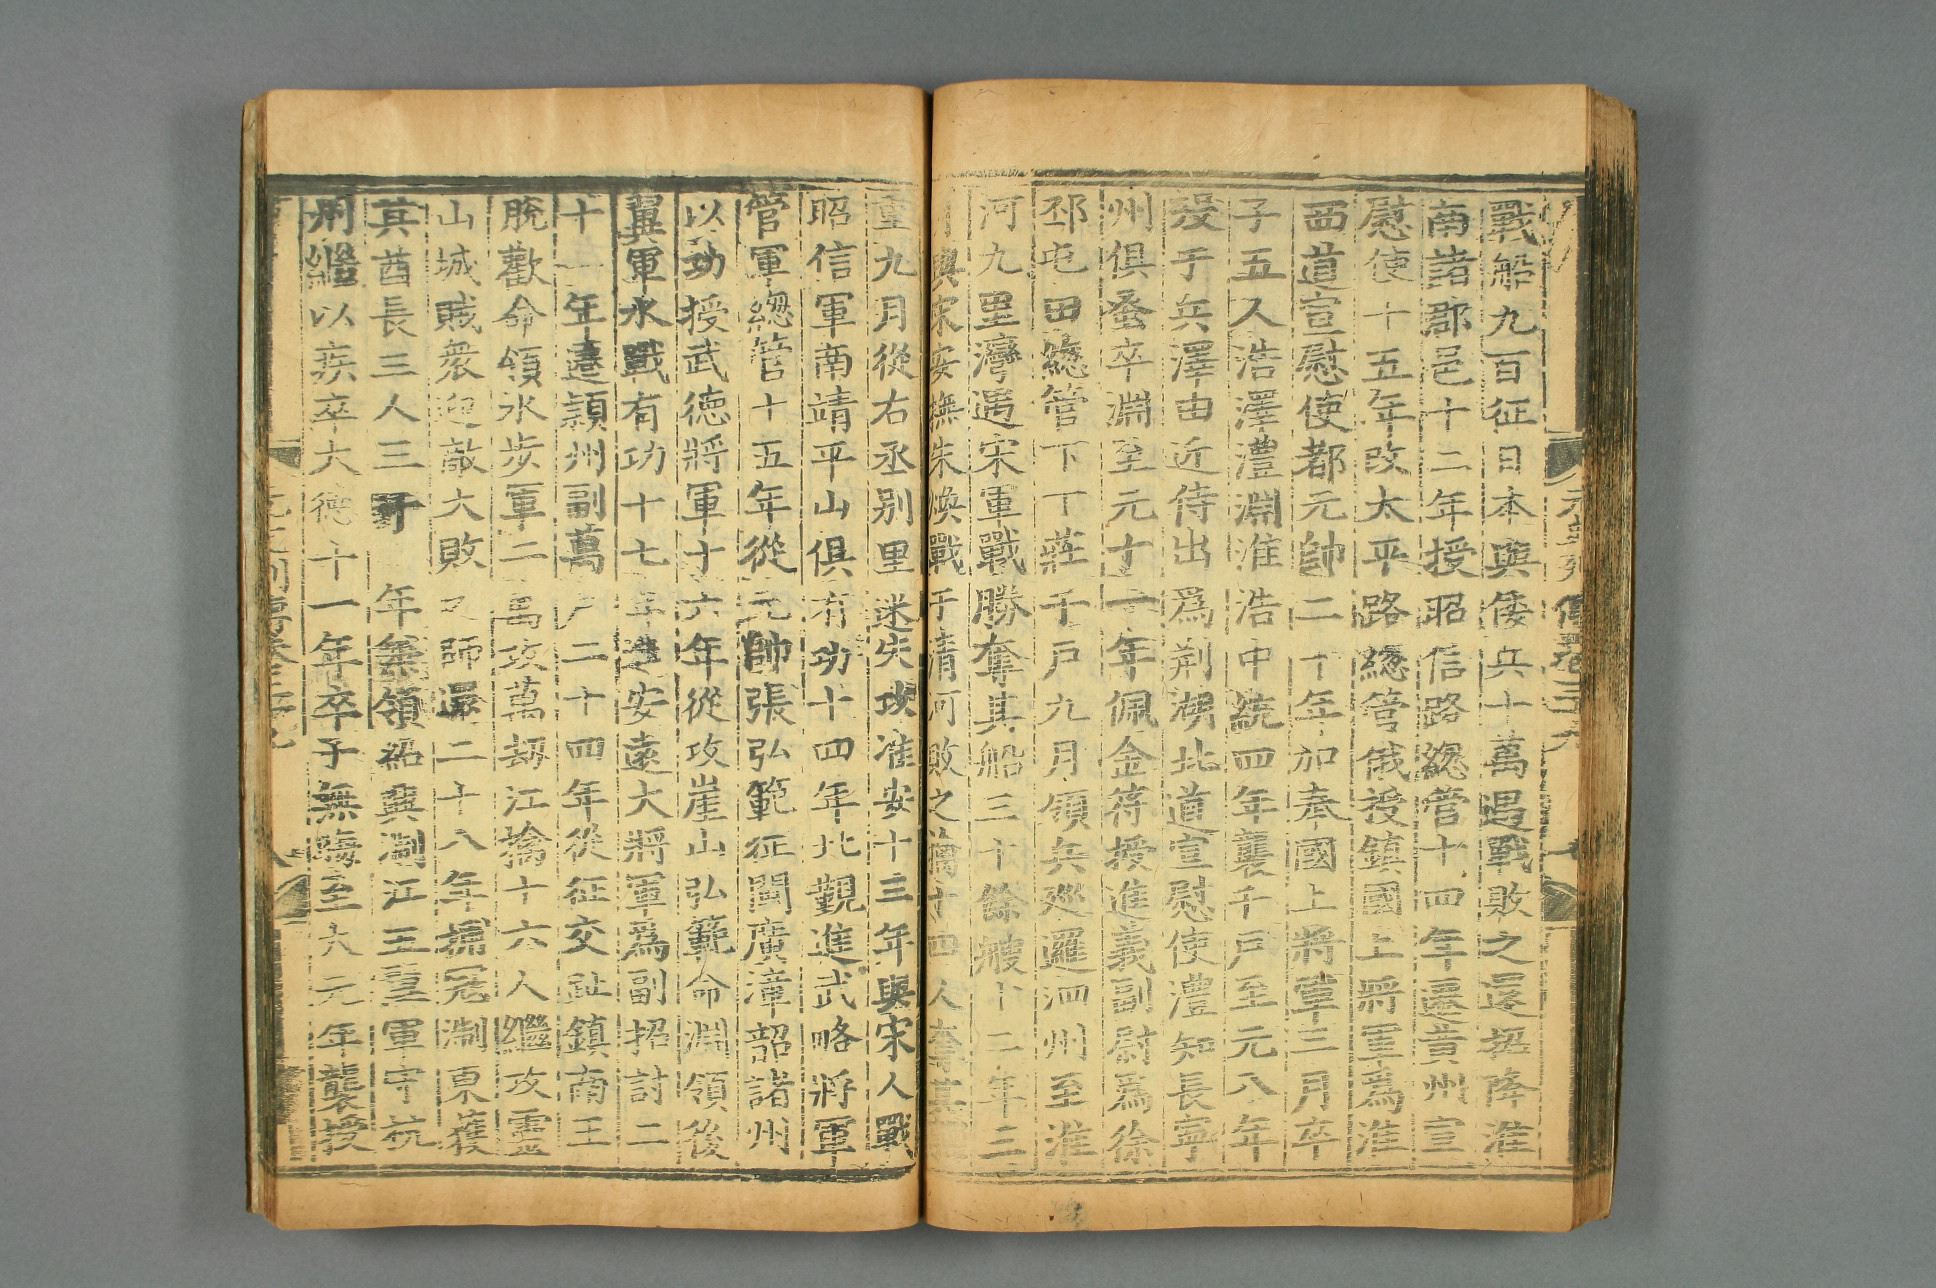 戰船九百征日本與倭兵十萬遇戰敗之還招降淮
南諸郡邑十二年授昭信路緫管十四年遷黄州宣
慰使十五年改太平路緫管俄授鎮國上將軍爲淮
西道宣慰使都元帥二十年加奉國上將軍三月卒
子五人浩澤澧淵淮浩中統四年襲千戸至元八年
殁于兵澤由近侍出爲荆湖北道宣慰使澧知長寧
州俱蚤卒淵至元十一年佩金符授進義副尉爲徐
邳屯田緫管下丁莊千戸九月領兵廵邏泗州至淮
河九里灣遇宋軍戰勝奪其船三十餘艘十二年三
月與宋安撫朱煥戰于清河敗之擒十四人奪其
重九月從右丞别里迷失攻淮安十三年與宋人戰
昭信軍南靖平山俱有功十四年北覲進武略將軍
管軍緫管十五年從元帥張弘範征閩廣漳韶諸州
以功授武德將軍十六年從攻崖山弘範命淵領後
翼軍水戰有功十七年進安遠大將軍爲副招討二
十一年遷潁州副萬戸二十四年從征交趾鎮南王
脫歡命領水步軍二萬攻萬劫江擒十六人繼攻靈
山城賊衆迎敵大敗之師還二十八年捕冦淛東獲
其酋長三人三十 年兼領紹興淛江五翼軍守杭
州繼以疾卒大德十一年卒子無晦至大元年襲授